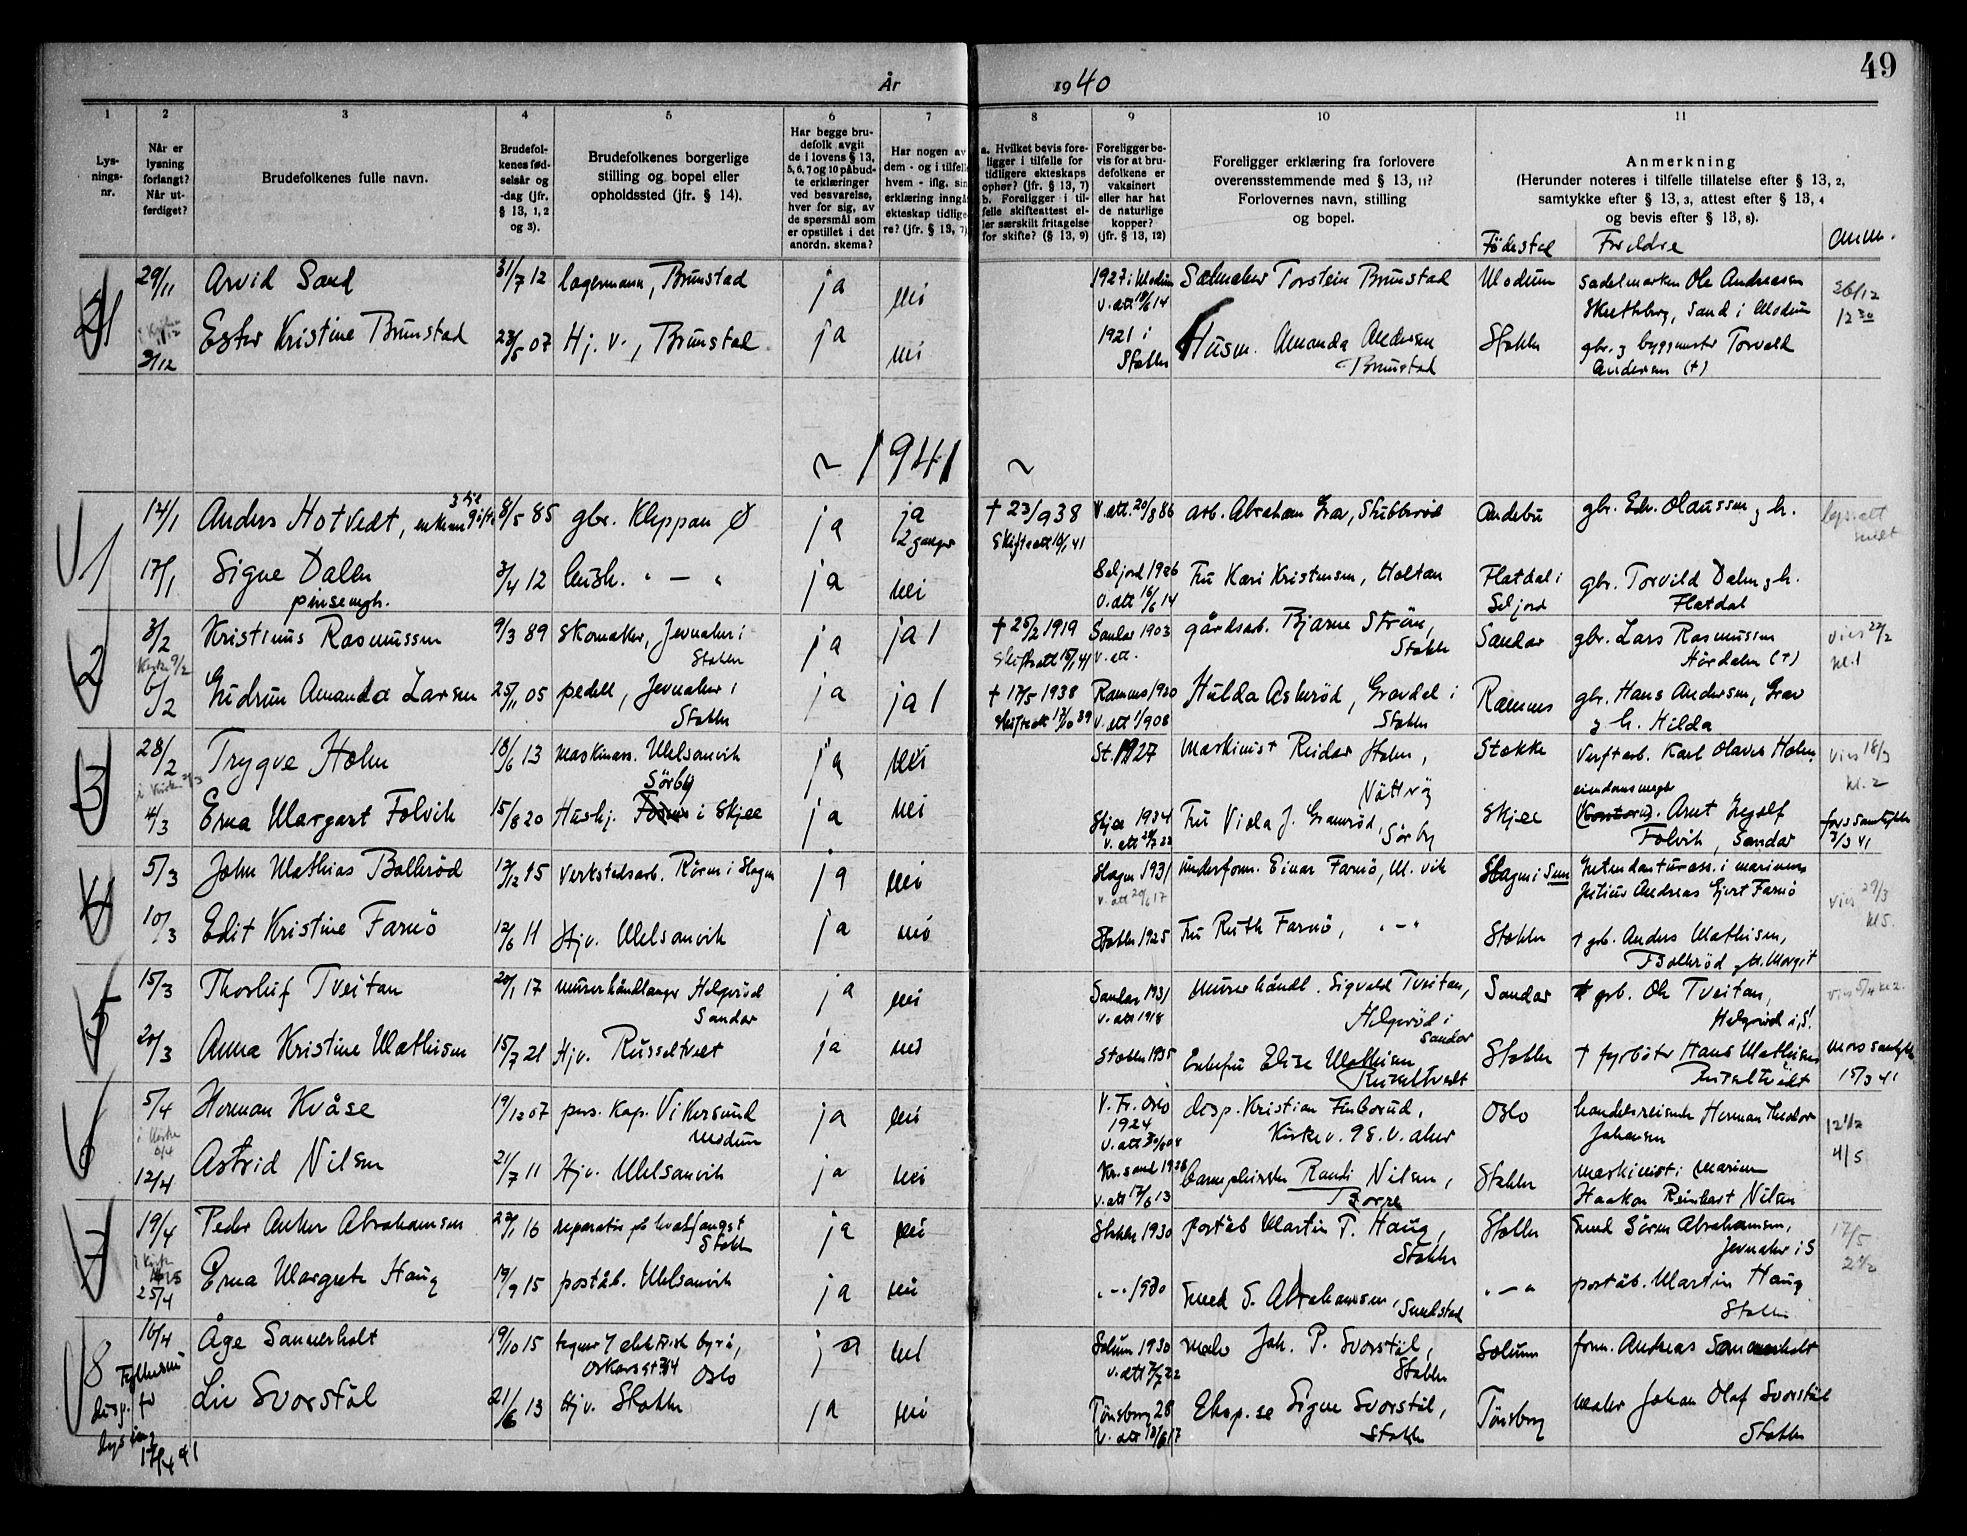 49
År 1940
1 2 3 4 5 6 7 8 9 10 11
Lysningsnr.
Når er lysning forlangt? Når utferdiget?
Brudefolkenes fulle navn.
Brudefolkenes fødselsår og -dag (jfr. § 13, 1, 2 og 3).
Brudefolkenes borgerlige stilling og bopel eller opholdssted (jfr. § 14).
Har begge brudefolk avgit de i lovens § 13, 5, 6, 7 og 10 påbudte erklæringer ved besvarelse, hver for sig, av de spørsmål som er opstillet i det anordn. skema?
Har nogen av dem - og i tilfelle hvem - iflg. sin erklæring inngåt ekteskap tidligere? (jfr. § 13, 7).
a. Hvilket bevis foreligger i tilfelle for tidligere ekteskaps ophør? (jfr. § 13, 7) b. Foreligger i tilfelle skifteattest eller særskilt fritagelse for skifte? (§ 13, 9)
Foreligger bevis for at brudefolkene er vaksinert eller har hat de naturlige kopper? (jfr. § 13, 12)
Foreligger erklæring fra forlovere overensstemmende med § 13, 11? Forlovernes navn, stilling og bopel.
Anmerkning (Herunder noteres i tilfelle tillatelse efter § 13, 2, samtykke efter § 13, 3, attest efter § 13, 4 og bevis efter § 13, 8).
Födested Foreldre Anm.
29/11 Arvid Sand 31/7 12 lagermann, Brunstad ja nei 1927 i Modum Torstein Brunstad Modum Ole Andreassen
Sand i Modum 26/12 12 30
2/12 Ester Kristine Brunstad 23/5 07 Hj. v., Brunstad ja nei 1921 i Stokke Husm. Amanda Andersen Brunstad Stokke gbr. og byggmester Torvald Andersen (+)
~ 1941 ~
1 14/1 Anders Hotvedt, 8/5 85 gbr. Kleppan Ø ja ja 2 ganger + 23/9 38 Skifteatt V. att. 20/8 86 arb. Abraham Grav, Stubberöd Andebu gbr. Edv. Olaussen og h.
17/1 Signe Dalen pinsemgh. 3/4 12 " — " ja nei Seljord 1926 v. att 16/6 14 Fru Kari Kristensen, Holtan Flatdal i Seljord gbr. Torvild Dalen og h. Flatdal
2 3/2 Kristinus Rasmussen 9/3 89 skomaker, Jernaker i Stokke ja ja 1 + 25/2 1919 Sandar 1903 v. att. gårdsarb. Bjarne Ström, Stokke Sandar gbr. Lars Rasmussen Hördalen (+) vies 22/2 kl. 1
6/2 Gudrun Amanda Larsen 25/11 05 pedell, Jernaker i Stokke ja ja 1 + 17/5 1938 Ramnes 1920 Hulda Askeröd, Gravdal i Stokke Ramnes gbr. Hans Andersen, Grav og h. Hilda
3 28/2 Trygve Holm 18/6 13 maskinass. Melsomvik ja nei St. 1927 Maskinist Reidar Holm, Nötteröy Stokke Verftarb. Karl Olaves Holm, vies 18/3 kl. 2
4/3 Erna Margart Folvik 15/8 20 Hushj. Sörby i Skjee ja nei Skjee 1934 Fru Viola J. Graneröd, Sörby Skjee Arnt Folvik, Sandar fars samtykke 3/3 41
4 5/3 John Mathias Bolleröd 12/12 15 Verkstedsarb. Råen i Slagen ja nei Slagen 1931 underform. Einar Farmö, M. vik Slagen i Sem
10/3 Edit Kristine Farmö 12/6 11 Hjv. Melsomvik ja nei Stokke 1925 Fru Ruth Farmö, " - " Stokke + grb. Anders Mathisen, Bolleröd vies 29/3 kl 5.
5 15/3 Thorleif Tveitan 20/1 17 murerhåndlanger Helgeröd Sandar ja nei Sandar 1931 v. att 1918 Murer håndl. Sigvald Tveitan, Helgeröd i Sandar Sandar grb. Ole Tveitan, Helgeröd i S. vies 5/4 kl 2.
20/3 Anna Kristine Mathisen 15/7 21 Hjv. Russeltvet ja nei Stokke 1935 Enkefru Elise Mathisen Russeltvedt Stokke + fyrböter Hans Mathisen Russeltvedt Mors samtykke 15/3 41
6 5/4 Herman Kvåse 19/12 07 pers. kap. Vikersund Modum ja nei V. Fr. Oslo 1924 disp. Kristian Finborud, Kirkev. 98. V. aker Oslo handelsreisende Herman Theodor Johansen
12/4 Astrid Nilsen 21/7 11 Hjv. Melsomvik ja nei Kr.sand 1928 v. att 17/6 13 Randi Nilsen, Borge Stokke Maskinist i Marinen Haakon Reinhart Nilsen 4/5
7 19/4 Peder Anker Abrahamsen 22/1 16 reparatör på hvalfangst Stokke ja nei Stokke 1930 poståb Martin T. Haug, Stokke Stokke Smed Sören Abrahamsen, Jernaker i S 17/5
25/4 Erna Margrete Haug 19/9 15 poståb. Melsomvik ja nei " - " 1930 Smed S. Abrahamsen, Sundstad " - " poståb. Martin Haug Stokke
8 16/4 Åge Sannerholt 19/10 15 tegner elektrisk byrå, Oskarsgt Oslo ja nei Solum 1930 maler Joh. P. Svorstöl, Stokke Solum form. Andreas Sannerholt
Fylkesm. disp. for lysing 17/4 41
Liv Svorstöl 21/6 13 Hjv. Stokke ja nei Tönsberg 28 Eksp.se Signe Svorstöl, Stokke Tönsberg Maler Johan Olaf Svorstöl Stokke